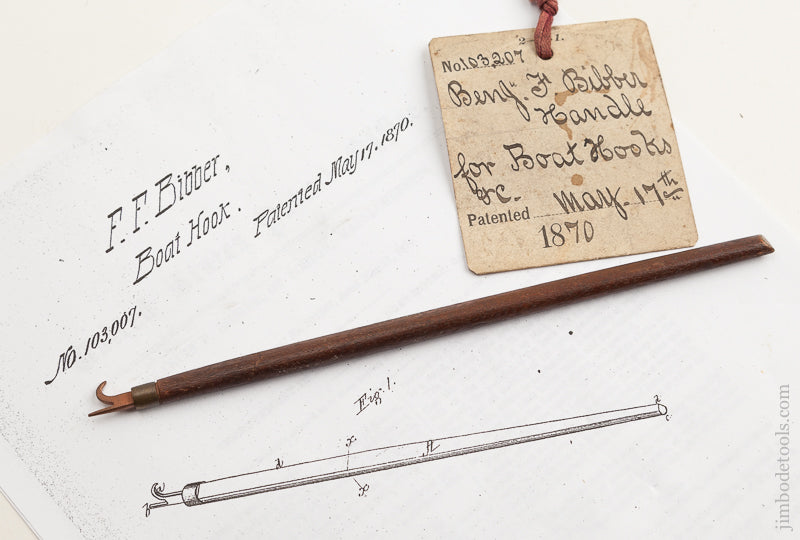 F. F. Bibber,
Boat Hook.
Patented May 17. 1870.
No. 103,007.
Fig. 1.
2 1.
No. 103,207
Benj. F. Bibber
Handle
for Boat Hooks
&c.
Patented May. 17th
1870
jimbodetools.com